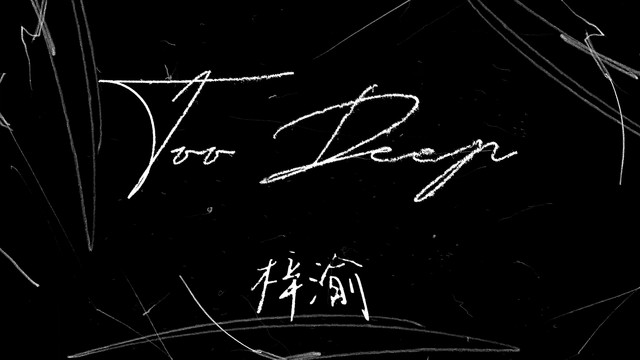 Too Deep
梓渝